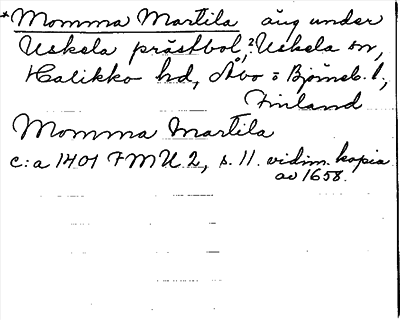 *Momma Martila äng under
Uskela prästbol,? Uskela sn,
Halikko hd, Åbo o Björneb. l.,
Finland
Momma Martila
c:a 1401 FMU 2, s. 11. vidim. kopia
av 1658.